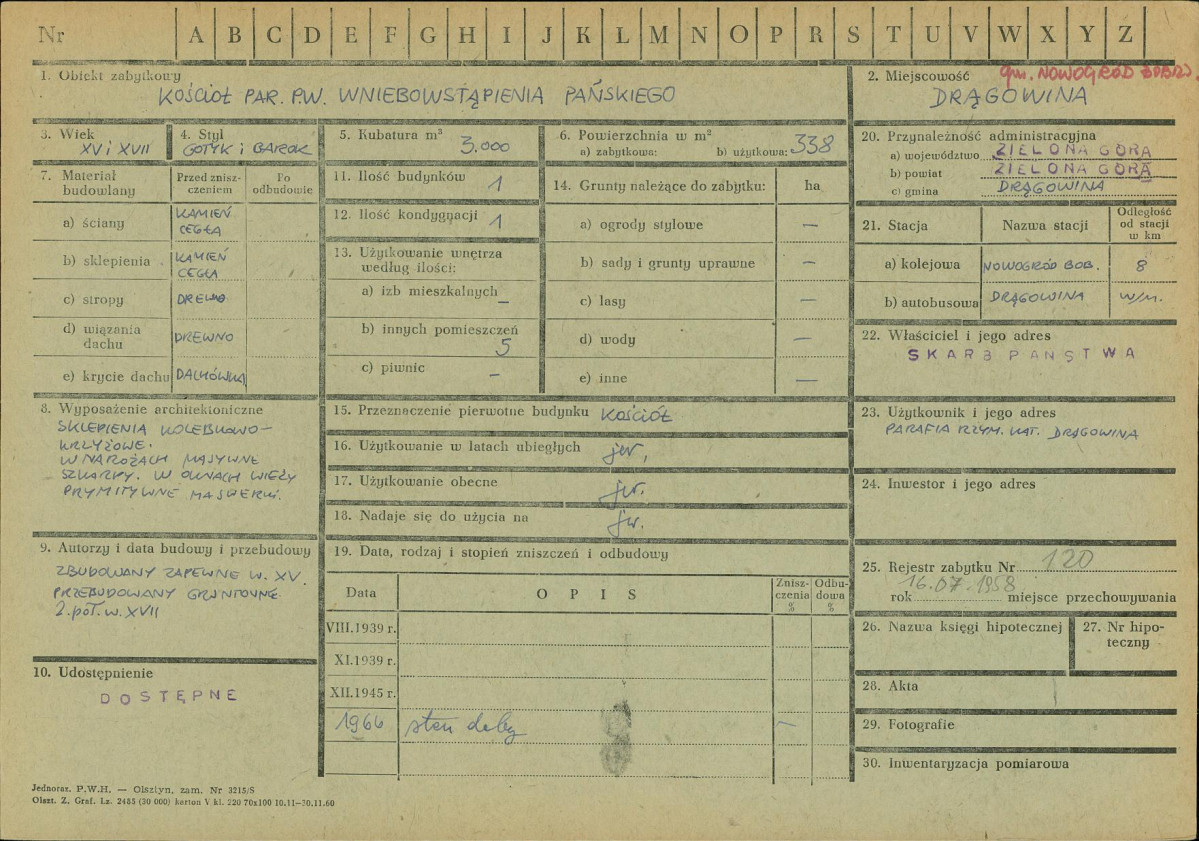 Nr A B C D E F G H I J K L M N O P R S T U V W X Y Z
1. Obiekt zabytkowy
KOŚCIÓŁ PAR. P.W. WNIEBOWSTĄPIENIA PAŃSKIEGO
2. Miejscowość
gm. NOWOGRÓD BOBRZ.
DRĄGOWINA
3. Wiek
XV i XVII
4. Styl
GOTYK i BAROK
5. Kubatura m³
3.000
6. Powierzchnia w m²
a) zabytkowa: b) użytkowa: 338
20. Przynależność administracyjna
a) województwo ZIELONA GÓRA
b) powiat ZIELONA GÓRA
c) gmina DRĄGOWINA
7. Materiał budowlany
Przed zniszczeniem
Po odbudowie
a) ściany KAMIEŃ CEGŁA
b) sklepienia KAMIEŃ CEGŁA
c) stropy DREWNO
d) wiązania dachu DREWNO
e) krycie dachu DACHÓWKA
11. Ilość budynków 1
12. Ilość kondygnacji 1
13. Użytkowanie wnętrza według ilości:
a) izb mieszkalnych –
b) innych pomieszczeń 5
c) piwnic –
14. Grunty należące do zabytku: ha
a) ogrody stylowe –
b) sady i grunty uprawne –
c) lasy –
d) wody –
e) inne –
21. Stacja Nazwa stacji Odległość od stacji w km
a) kolejowa NOWOGRÓD BOB. 8
b) autobusowa DRĄGOWINA W/M.
22. Właściciel i jego adres
SKARB PAŃSTWA
8. Wyposażenie architektoniczne
SKLEPIENIA KOLEBKOWO-
KRZYŻOWE.
W NAROŻACH MASYWNE
SZKARPY. W OKNACH WIEŻY
PRYMITYWNE MASWERKI.
15. Przeznaczenie pierwotne budynku KOŚCIÓŁ
16. Użytkowanie w latach ubiegłych jw.
17. Użytkowanie obecne jw.
18. Nadaje się do użycia na jw.
23. Użytkownik i jego adres
PARAFIA RZYM. KAT. DRĄGOWINA
24. Inwestor i jego adres
9. Autorzy i data budowy i przebudowy
ZBUDOWANY ZAPEWNE W. XV.
PRZEBUDOWANY GRUNTOWNIE
2. POŁ. W. XVII
19. Data, rodzaj i stopień zniszczeń i odbudowy
Data OPIS Zniszczenia % Odbudowa %
VIII.1939 r.
XI.1939 r.
XII.1945 r.
1966 stan dobry –
25. Rejestr zabytku Nr 120
16.07.1958
rok miejsce przechowywania
26. Nazwa księgi hipotecznej
27. Nr hipoteczny
10. Udostępnienie
DOSTĘPNE
28. Akta
29. Fotografie
30. Inwentaryzacja pomiarowa
Jednoraz. P.W.H. — Olsztyn, zam. Nr 3215/S
Olszt. Z. Graf. Lz. 2455 (30 000) karton V kl. 220 70x100 10.11—30.11.60